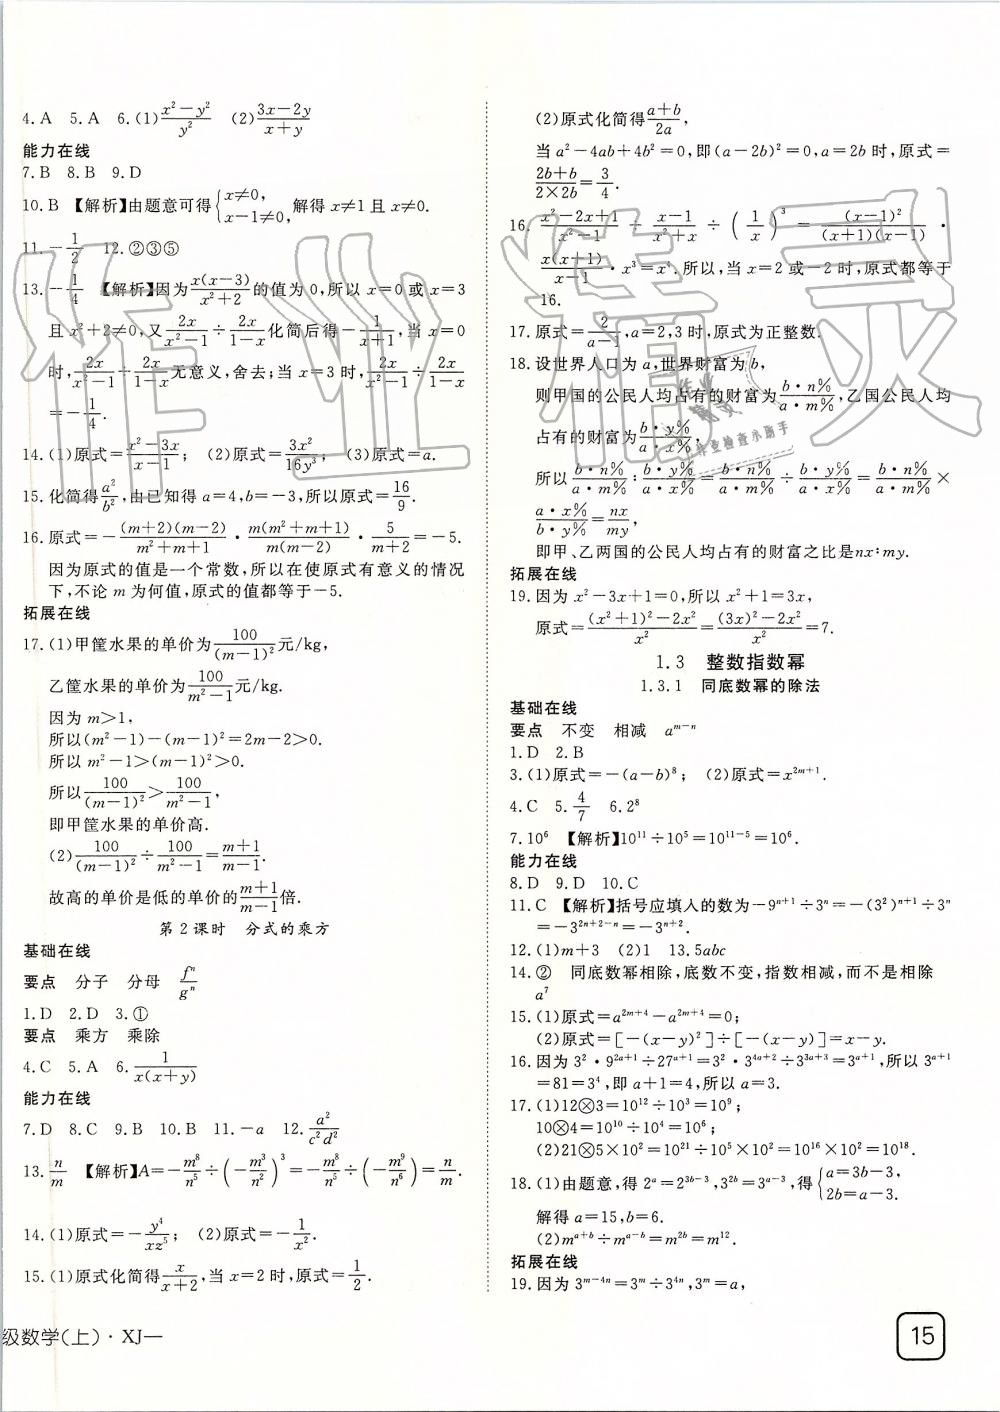 4. A 5. A 6. (1) (x²−y²)/y² (2) (3x−2y)/(x+y)
能力在线
7. B 8. B 9. D
10. B 【解析】由题意可得{x≠0, x−1≠0, 解得 x≠1 且 x≠0.
11. −1/2 12. ②③⑤
13. −1/4 【解析】因为 x(x−3)/(x²+2) 的值为 0,所以 x=0 或 x=3
且 x²+2≠0,又 2x/(x²−1)÷2x/(1−x) 化简后得−1/(x+1),当 x=0
时,2x/(x²−1)÷2x/(1−x) 无意义,舍去;当 x=3 时,2x/(x²−1)÷2x/(1−x)
=−1/4.
14. (1)原式=(x²−3x)/(x−1); (2)原式=3x²/(16y³); (3)原式=a.
15. 化简得 a²/b²,由已知得 a=4,b=−3,所以原式=16/9.
16. 原式=−(m+2)(m−2)/(m²+m+1)·m(m²+m+1)/(m(m−2))·5/(m+2)=−5.
因为原式的值是一个常数,所以在使原式有意义的情况
下,不论 m 为何值,原式的值都等于−5.
拓展在线
17. (1)甲筐水果的单价为 100/(m−1)² 元/kg,
乙筐水果的单价为 100/(m²−1) 元/kg.
因为 m>1,
所以(m²−1)−(m−1)²=2m−2>0.
所以 m²−1>(m−1)²>0.
所以 100/(m−1)²>100/(m²−1),
即甲筐水果的单价高.
(2) 100/(m−1)²÷100/(m²−1)=(m+1)/(m−1).
故高的单价是低的单价的 (m+1)/(m−1) 倍.
第 2 课时 分式的乘方
基础在线
要点 分子 分母 fⁿ/gⁿ
1. D 2. D 3. ①
要点 乘方 乘除
4. C 5. A 6. 1/(x(x+y))
能力在线
7. D 8. C 9. B 10. B 11. −a 12. a²/(c²d²)
13. n/m 【解析】A=−m⁸/n⁵÷(−m³/n²)³=−m⁸/n⁵÷(−m⁹/n⁶)=n/m.
14. (1)原式=−y⁴/(xz⁵); (2)原式=−1/x².
15. (1)原式化简得 x/(x+2),当 x=2 时,原式=1/2.
级数学(上)·XJ—
(2)原式化简得 (a+b)/(2a),
当 a²−4ab+4b²=0,即(a−2b)²=0,a=2b 时,原式=
(2b+b)/(2×2b)=3/4.
16. (x²−2x+1)/(x²−1)÷(x−1)/(x²+x)÷(1/x)³=(x−1)²/((x+1)(x−1))·
x(x+1)/(x−1)·x³=x⁴. 所以,当 x=2 或−2 时,原式都等于
16.
17. 原式=2/(a−1),a=2,3 时,原式为正整数.
18. 设世界人口为 a,世界财富为 b,
则甲国的公民人均占有的财富为 (b·n%)/(a·m%),乙国公民人均
占有的财富为 (b·y%)/(a·x%).
所以 (b·n%)/(a·m%)∶(b·y%)/(a·x%)=(b·n%)/(a·m%)÷(b·y%)/(a·x%)=(b·n%)/(a·m%)×
(a·x%)/(b·y%)=nx/my,
即甲、乙两国的公民人均占有的财富之比是nx∶my.
拓展在线
19. 因为 x²−3x+1=0,所以 x²+1=3x,
原式=((x²+1)²−2x²)/x²=((3x)²−2x²)/x²=7.
1.3 整数指数幂
1.3.1 同底数幂的除法
基础在线
要点 不变 相减 aᵐ⁻ⁿ
1. D 2. B
3. (1)原式=−(a−b)⁸; (2)原式=x²ᵐ⁺¹.
4. C 5. 4/7 6. 2⁸
7. 10⁶ 【解析】10¹¹÷10⁵=10¹¹⁻⁵=10⁶.
能力在线
8. D 9. D 10. C
11. C 【解析】括号应填入的数为−9ⁿ⁺¹÷3ⁿ=−(3²)ⁿ⁺¹÷3ⁿ
=−3²ⁿ⁺²⁻ⁿ=−3ⁿ⁺².
12. (1)m+3 (2)1 13. 5abc
14. ② 同底数幂相除,底数不变,指数相减,而不是相除
a⁷
15. (1)原式=a²ᵐ⁺⁴−a²ᵐ⁺⁴=0;
(2)原式=[−(x−y)²]÷[−(x−y)]=x−y.
16. 因为 3²·9²ᵃ⁺¹÷27ᵃ⁺¹=3²·3⁴ᵃ⁺²÷3³ᵃ⁺³=3ᵃ⁺¹,所以 3ᵃ⁺¹
=81=3⁴,即 a+1=4,所以 a=3.
17. (1)12⊗3=10¹²÷10³=10⁹;
10⊗4=10¹⁰÷10⁴=10⁶;
(2)21⊗5×10²=10²¹÷10⁵×10²=10¹⁶×10²=10¹⁸.
18. (1)由题意,得 2ᵃ=2³ᵇ⁻³,3²ᵇ=3ᵃ⁻³,得{a=3b−3, 2b=a−3.
解得 a=15,b=6.
(2)mᵃ⁺ᵇ÷mᵃ⁻ᵇ=m²ᵇ=m¹².
拓展在线
19. 因为 3ᵐ⁻⁴ⁿ=3ᵐ÷3⁴ⁿ,3ᵐ=a,
15
作业精灵